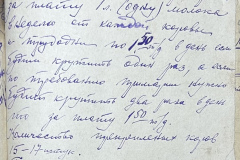 за плату 1 л. (один) молока
в неделю от каждой коровы
и трудодни по 1,50 т/д. в день если
будет крутить один раз, а если
по требованию нужно
будет крутить два раза в день
то за плату 1,50 т/д.
Количество прикрепленных коров
5-17 штук.